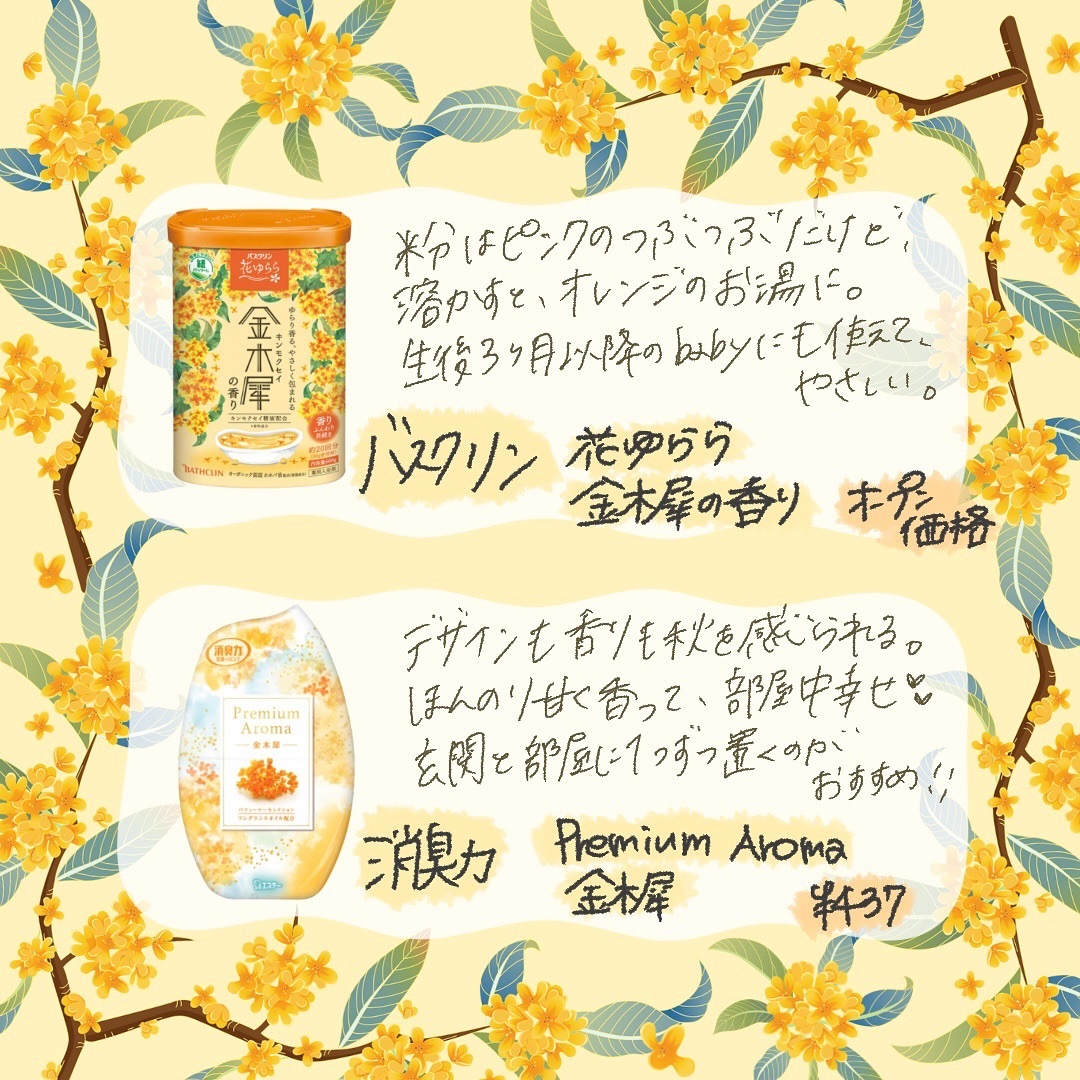 バスクリン
花ゆらら
ゆらり香る、やさしく包まれる
金木犀
キンモクセイ
の香り
キンモクセイ精油配合
香り
ふんわり
長続き
約20回分
BATHCLIN
薬用入浴剤
粉はピンクのつぶつぶだけど、
溶かすと、オレンジのお湯に。
生後3ヶ月以降のbabyにも使えて、
やさしい。
バスクリン
花ゆらら
金木犀の香り
オープン
価格
消臭力
Premium
Aroma
金木犀
パフューマーセレクション
フレグランスオイル配合
エステー
デザインも香りも秋を感じられる。
ほんのり甘く香って、部屋中幸せ♥♥
玄関と部屋に1つずつ置くのが
おすすめ!!
消臭力
Premium Aroma
金木犀
¥437